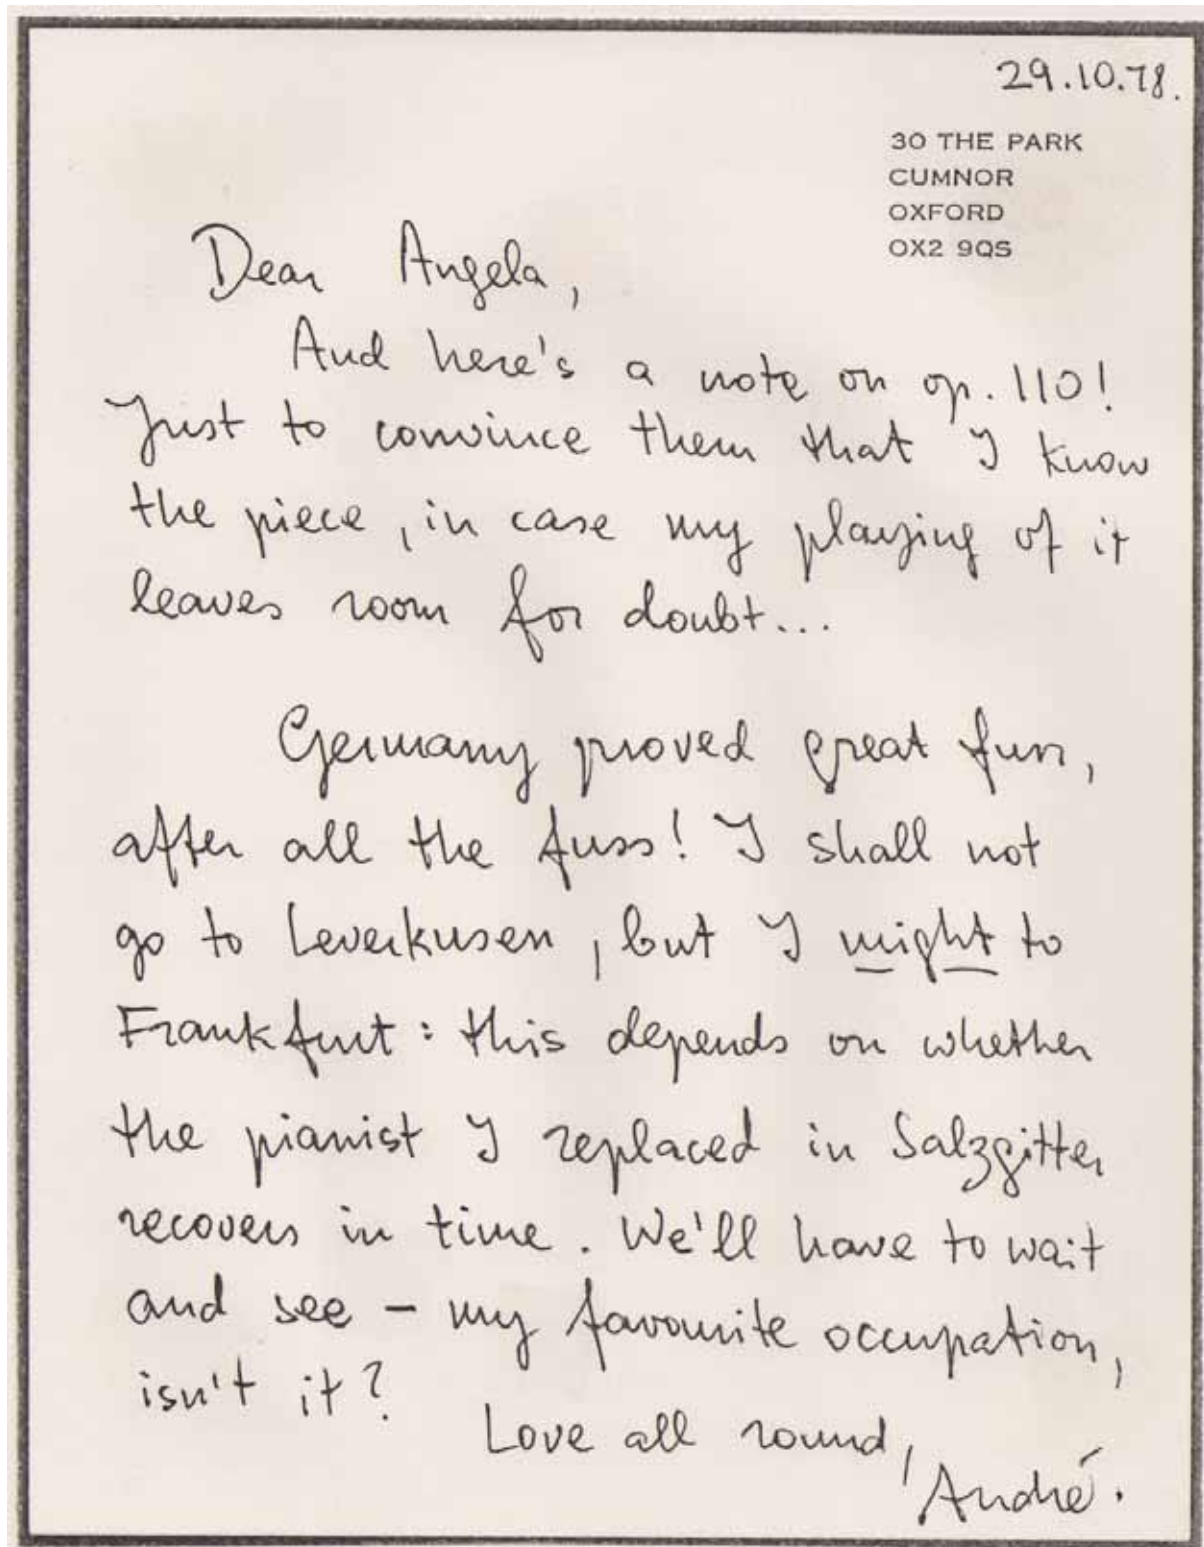 29.10.78.
30 THE PARK
CUMNOR
OXFORD
OX2 9QS
Dear Angela,
And here's a note on op. 110!
Just to convince them that I know
the piece, in case my playing of it
leaves room for doubt...
Germany proved great fun,
after all the fuss! I shall not
go to Leverkusen, but I might to
Frankfurt: this depends on whether
the pianist I replaced in Salzgitter
recovers in time. We'll have to wait
and see – my favourite occupation,
isn't it?
Love all round,
André.